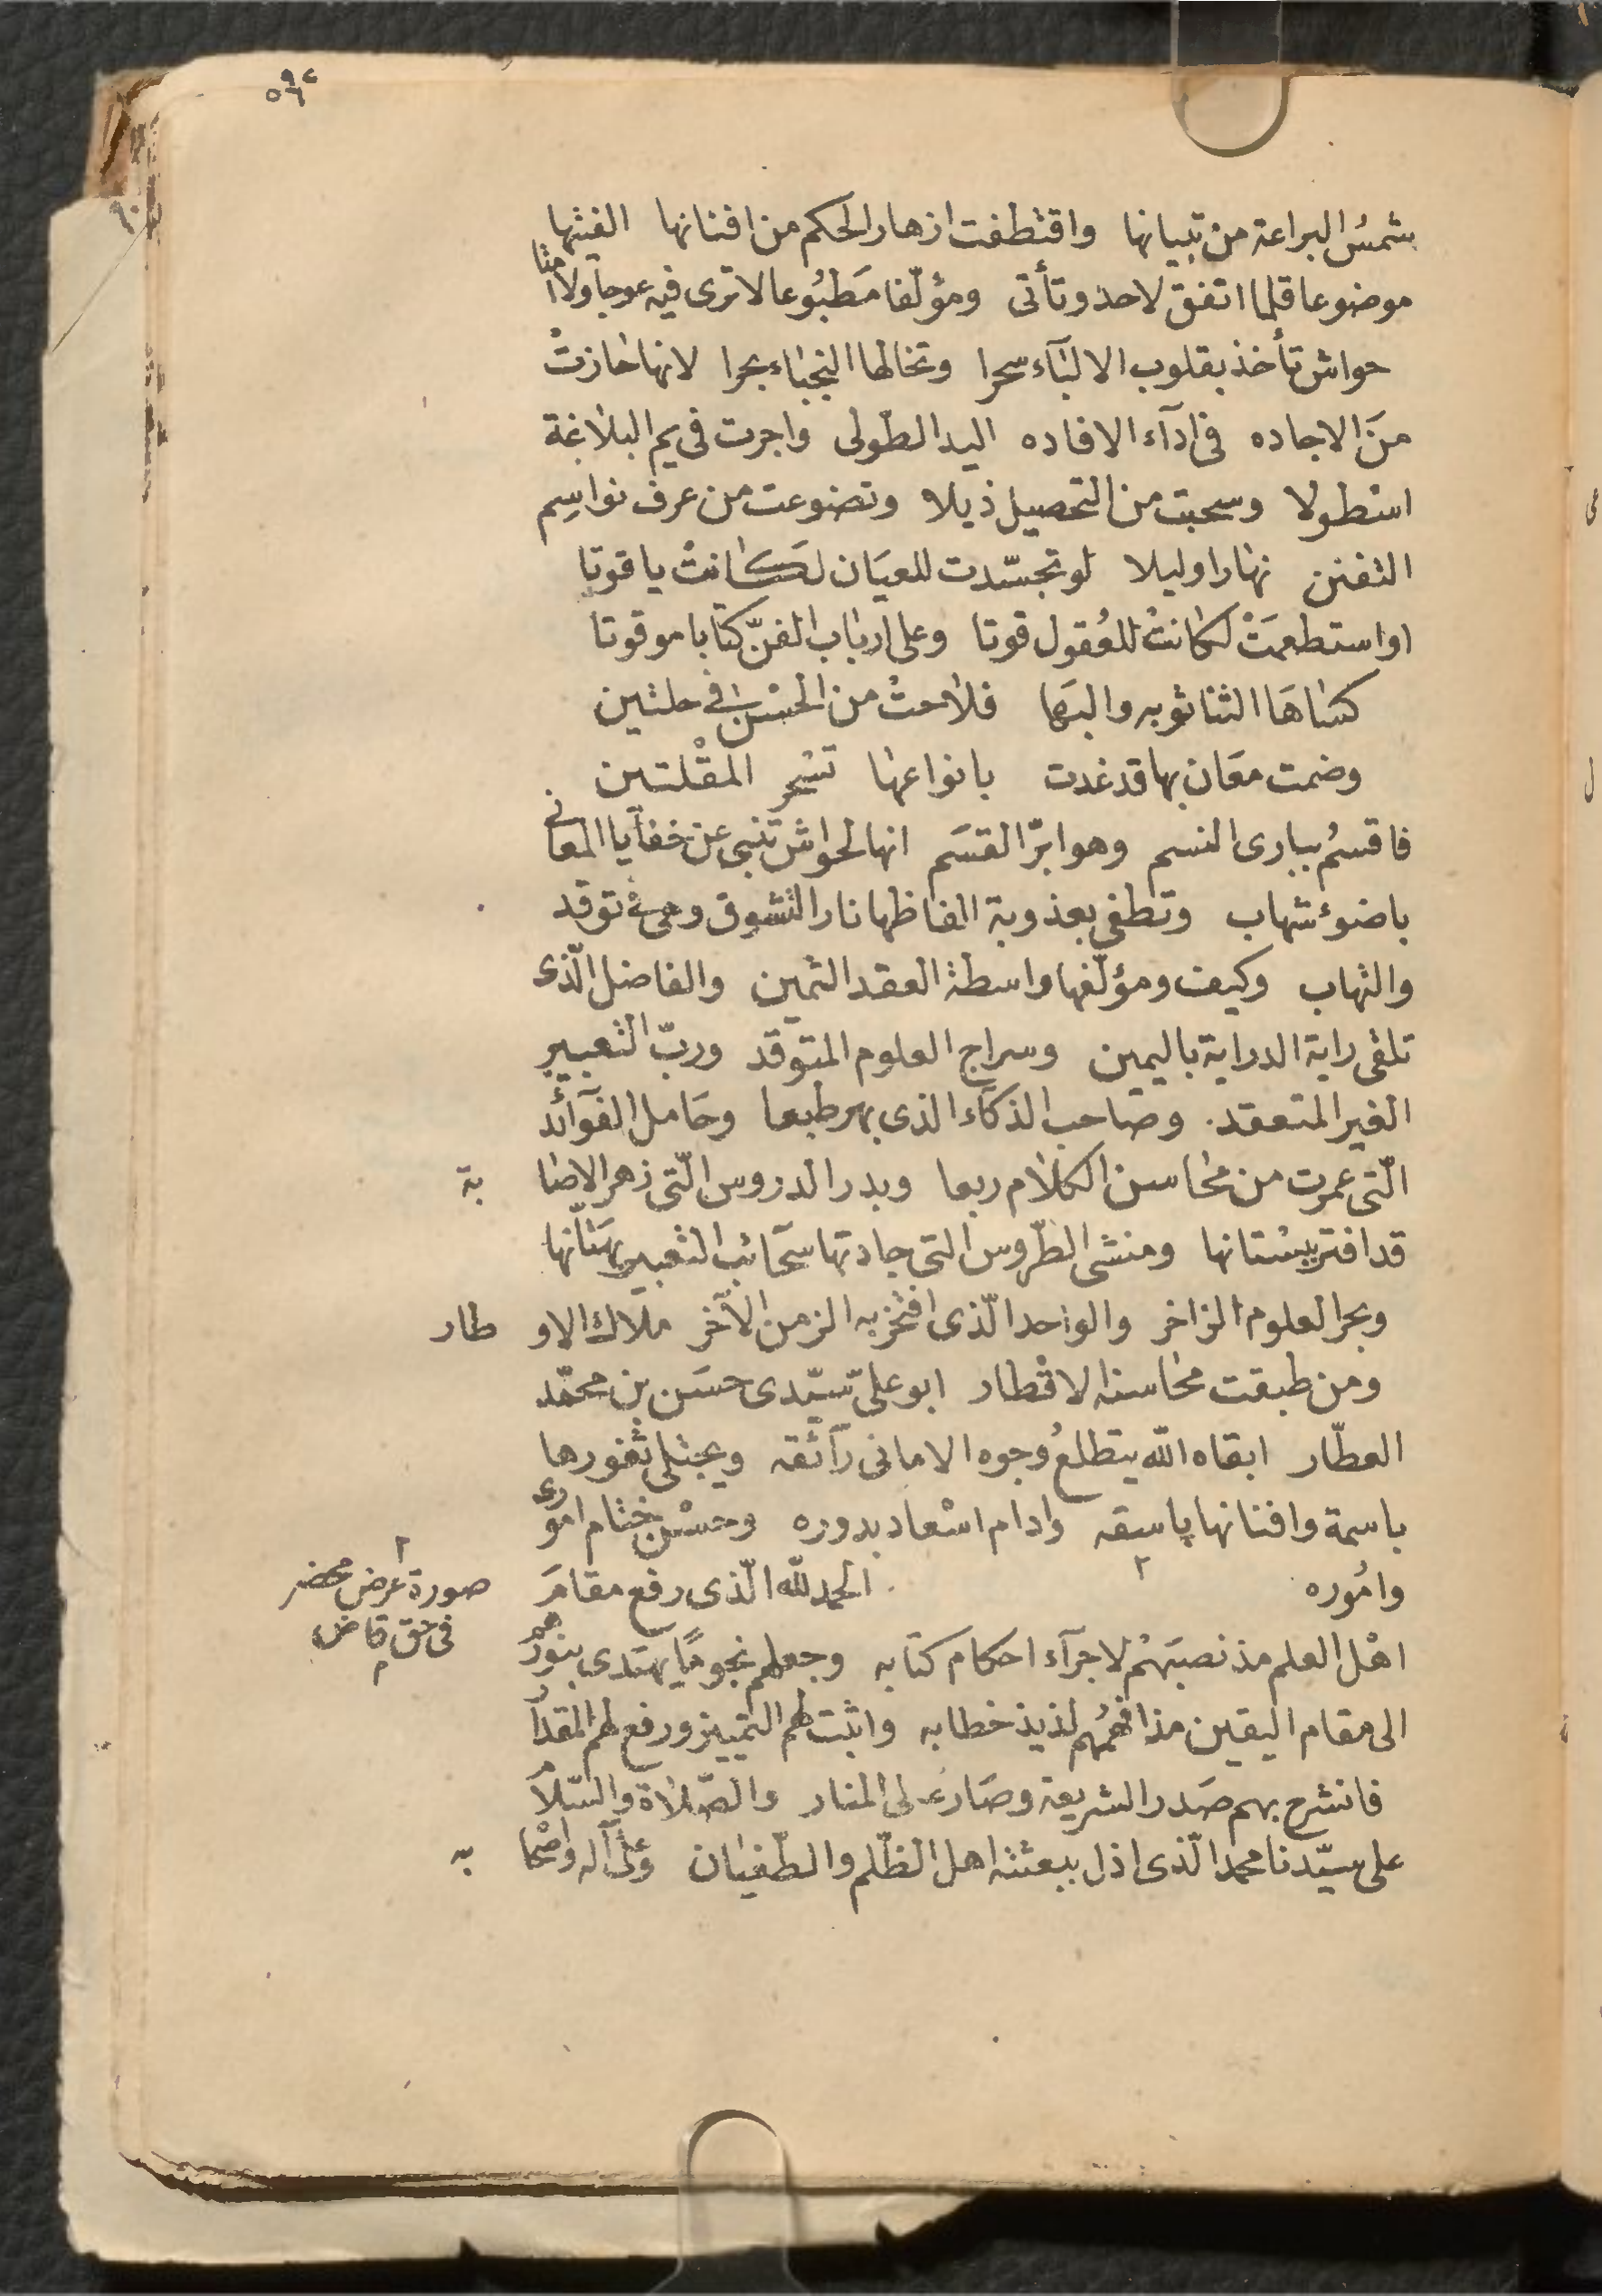 شمسُ البراعة من تبيانها واقتطفت ازهار الحكم من افنانها الفيتها
موضوعا قلما اتفق لاحد وتأتى ومؤلّفا مَطبُوعا لا ترى فيه عوجا ولا امتا
حواش تأخذ بقلوب الالبّآء سحرا وتخالها النجباء بحرا لانها حازتْ
منَ الاجاده فى ادآء الافاده اليد الطّولى واجرت فى يم البلاغة
اسْطولا وسحبت من التحصيل ذيلا وتضوعت من عرف نواسِم
التفنن نهارا وليلا لو تجسّدت للعيَان لكَانتْ ياقوتا
او استطعمَتْ لكانتْ للعُقول قوتا وعلى ارباب الفنّ كتابا موقوتا
كسَاهَا الثنا ثوبه والبهَا فلاحتْ من الحسْن فى حلتين
وضمت معَان بها قد غدت بانواعها تسْحر المقْلتين
فاقسمُ ببارى النسم وهو ابرّ القسَم انها لحواش تنبى عن خفآيا المعانى
باضوء شهاب وتطفى بعذوبة الفاظها نار التشوق وهى فى توقد
والتهاب وكيف ومؤلّفها واسطة العقد الثمين والفاضل الّذى
تلقى راية الدراية باليمين وسراج العلوم المتوقد وربّ التعبير
الغير المتعقد. وصاحب الذكآء الذى بهر طبعا وحَامل الفوآئد
الّتى عمرت من محاسن الكلام ربعا وبدر الدروس الّتى زهر الاصا بة
قد افتر ببسْتانها ومنشى الطّروس التى جادتها سحَائب التعبير بهتّانها
وبحر العلوم الزاخر والواحد الّذى افتخر به الزمن الآخر ملاك الاو طار
ومن طبقت محاسنه الاقطار ابو على سيّدى حسَن بن محمّد
العطّار ابقاه الله يتطلعُ وجوه الامانى رآئقه ويجتلى ثغورها
باسمة وافنانها باسقه وادام اسْعاد بدوره وحسْن ختام امورى
وامُوره الحمد لله الّذى رفع مقامَ
صورة عرض محضر
فى حق قاض
اهْل العلم مذ نصبَهُم لاجرآء احكام كتابه وجعلهم نجومًا يهتدى بنورهم
الى مقام اليقين مذ افهمُهم لذيذ خطابه واثبت لهم التمييز ورفع لهم المقدار
فانشرح بهم صَدر الشريعة وصَار على المنار والصّلاة والسّلام
على سيّدنا محمد الّذى اذل ببعثته اهل الظّلم والطّغيان وعلى آله واصْحا به